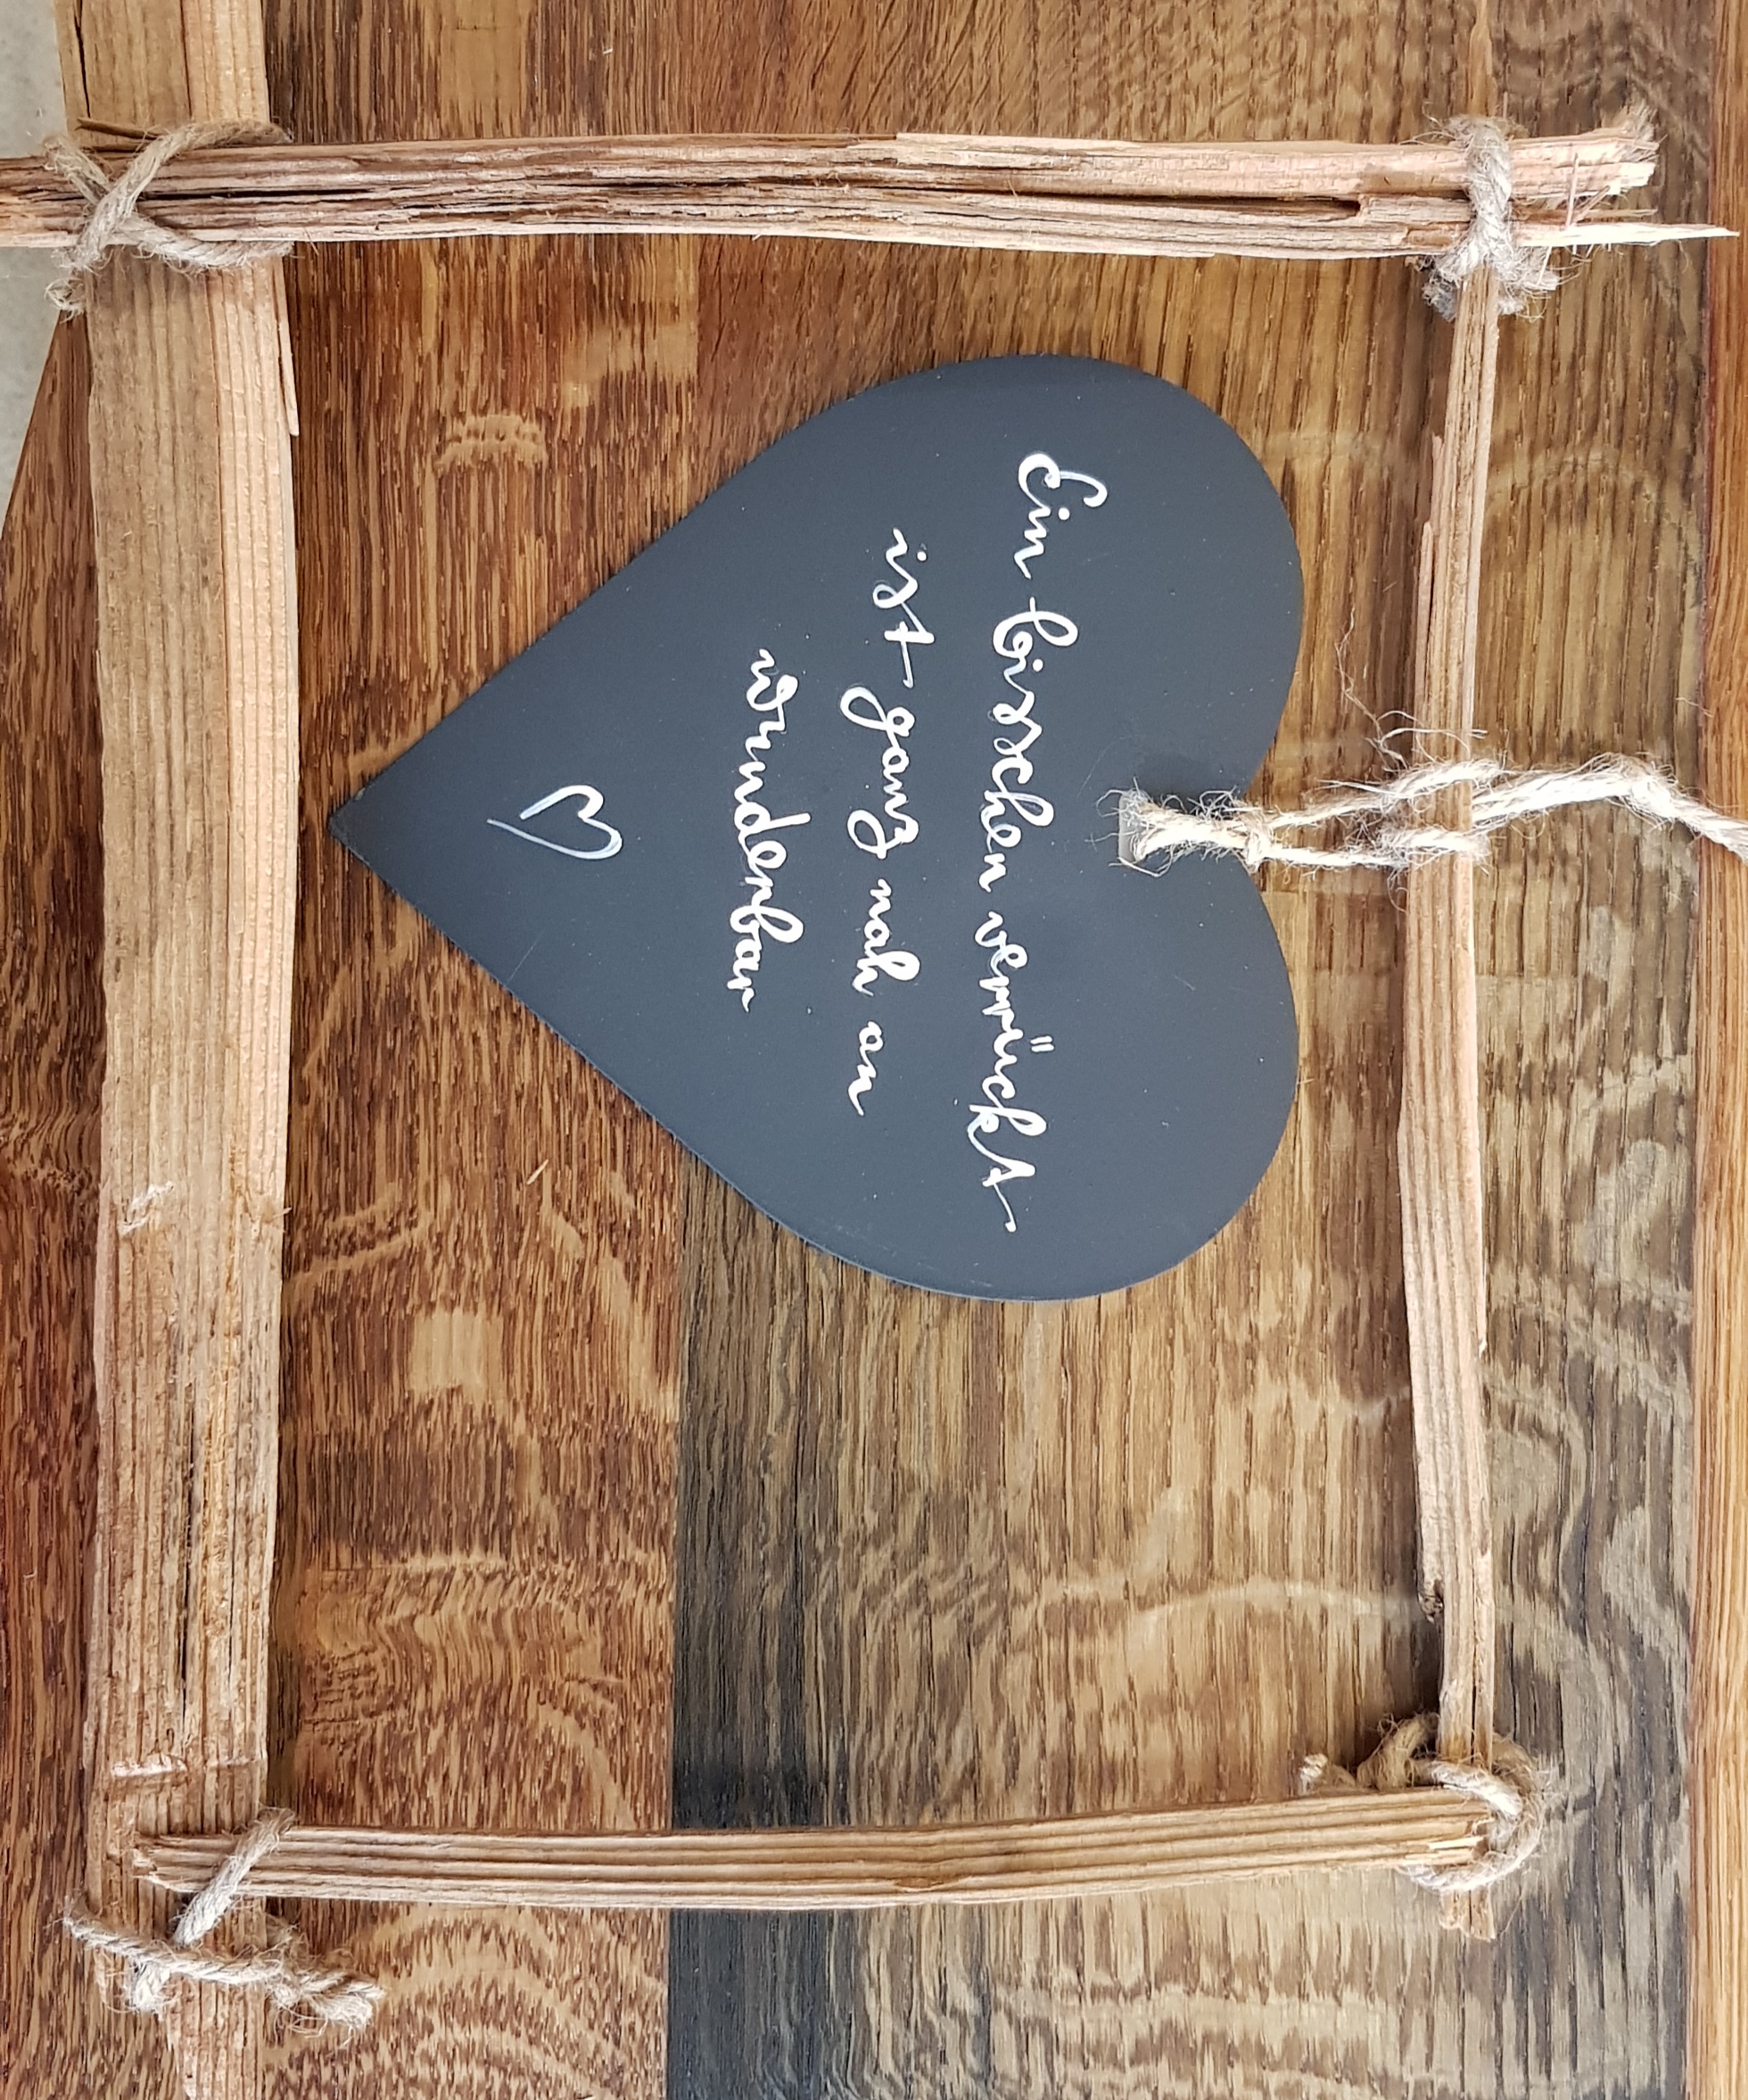 Ein bisschen verrückt
ist ganz nah an
wunderbar